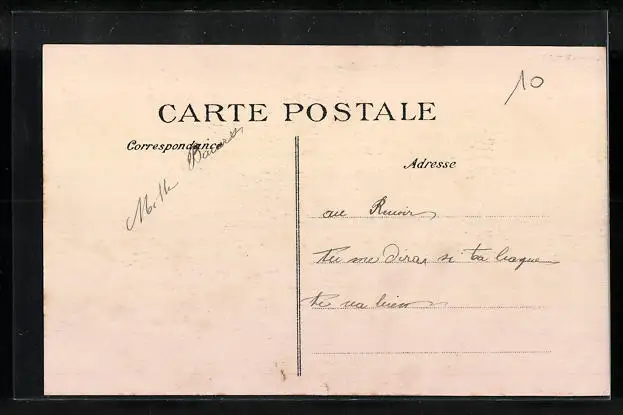 10
CARTE POSTALE
Correspondance
Mille Baisers
Adresse
au Revoir
tu me diras si ta bague
te va bien